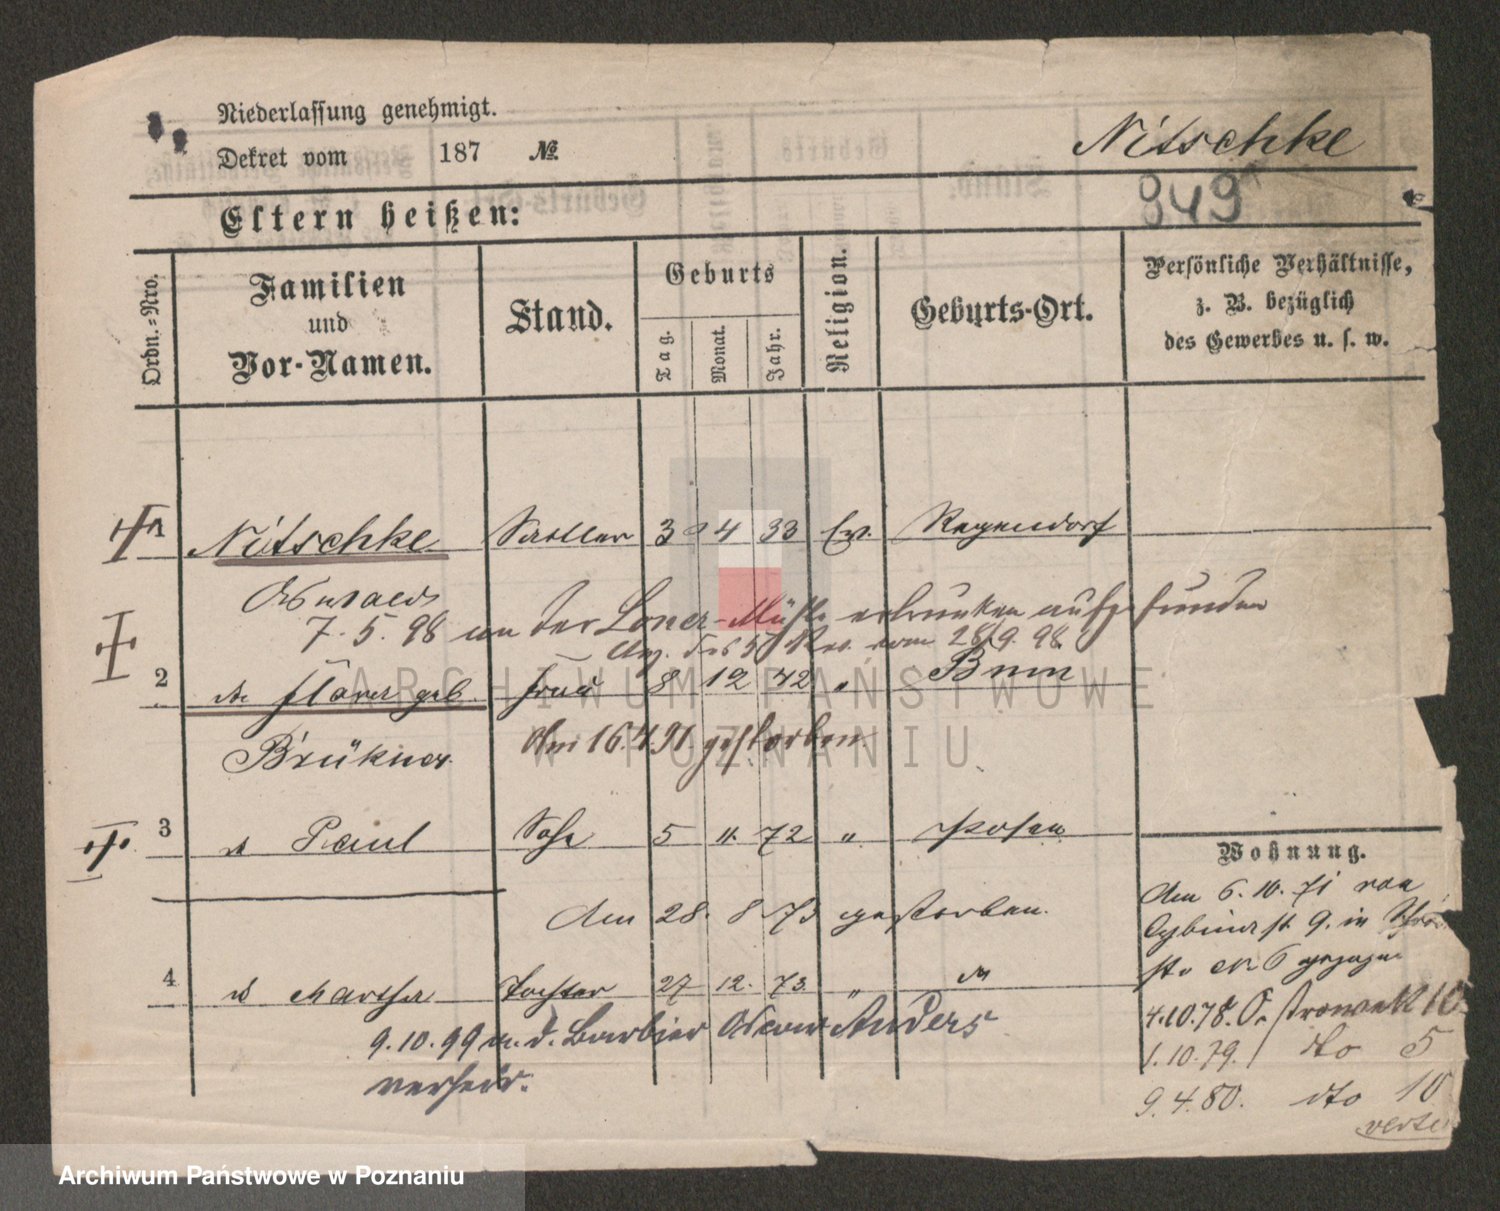 Niederlassung genehmigt.
Dekret vom 187 №
Nitschke
949
Eltern heißen:
Ordn.=Nro.
Familien
und
Vor-Namen.
Stand.
Geburts
Tag.
Monat.
Jahr.
Religion.
Geburts-Ort.
Persönliche Verhältnisse,
z. B. bezüglich
des Gewerbes u. s. w.
1 Nitschke Sattler 3 4 33 Ev. Regendorf
Oswald
7. 5. 98 in der Mühle ertrunken aufgefunden
vom 28/9. 98
2 geb. Frau 8 12 42 " Bnin
Brükner am 16.4.91. gestorben.
3 Paul Sohn 5 11. 72 " Posen
am 28. 8 73 gestorben.
4 Martha Tochter 27 12. 73 "
9.10.99 m. d. Barbier Oscar Anders
verheir.
Wohnung.
Am 6. 10. 71 von
9. in
6 gezogen
4.10.78. Ostrowek 10
1.10.79. dto 5
9.4.80. dto 10
ARCHIWUM PAŃSTWOWE
W POZNANIU
Archiwum Państwowe w Poznaniu